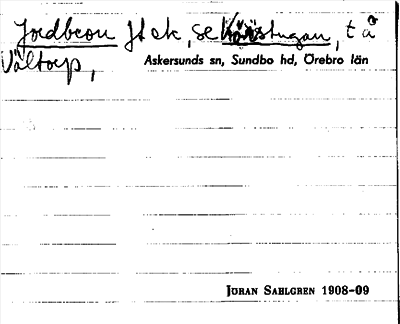 Jordbron ftek, se Körstugan, t å
Vältorp,
Askersunds sn, Sundbo hd, Örebro län
JÖRAN SAHLGREN 1908-09